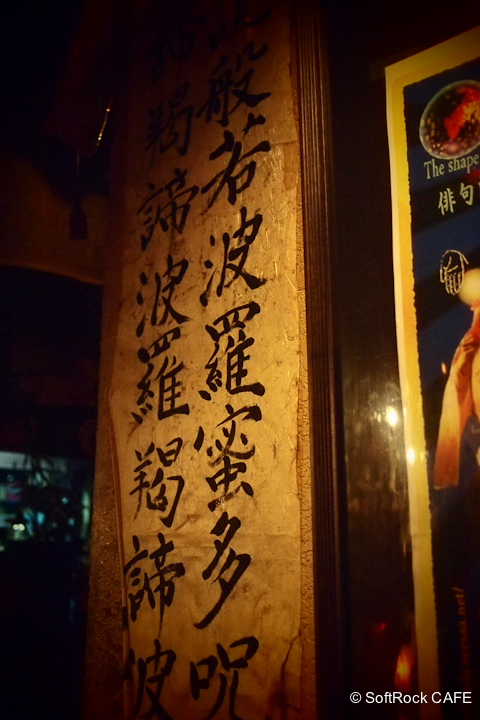 説般若波羅蜜多呪
諦羯諦波羅羯諦波
The shape
俳句
© SoftRock CAFE